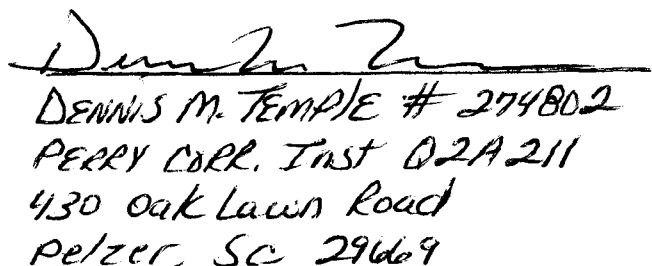 DENNIS M. TEMPLE # 274802
PERRY CORR. Inst Q2A211
430 Oak Lawn Road
Pelzer, SC 29669